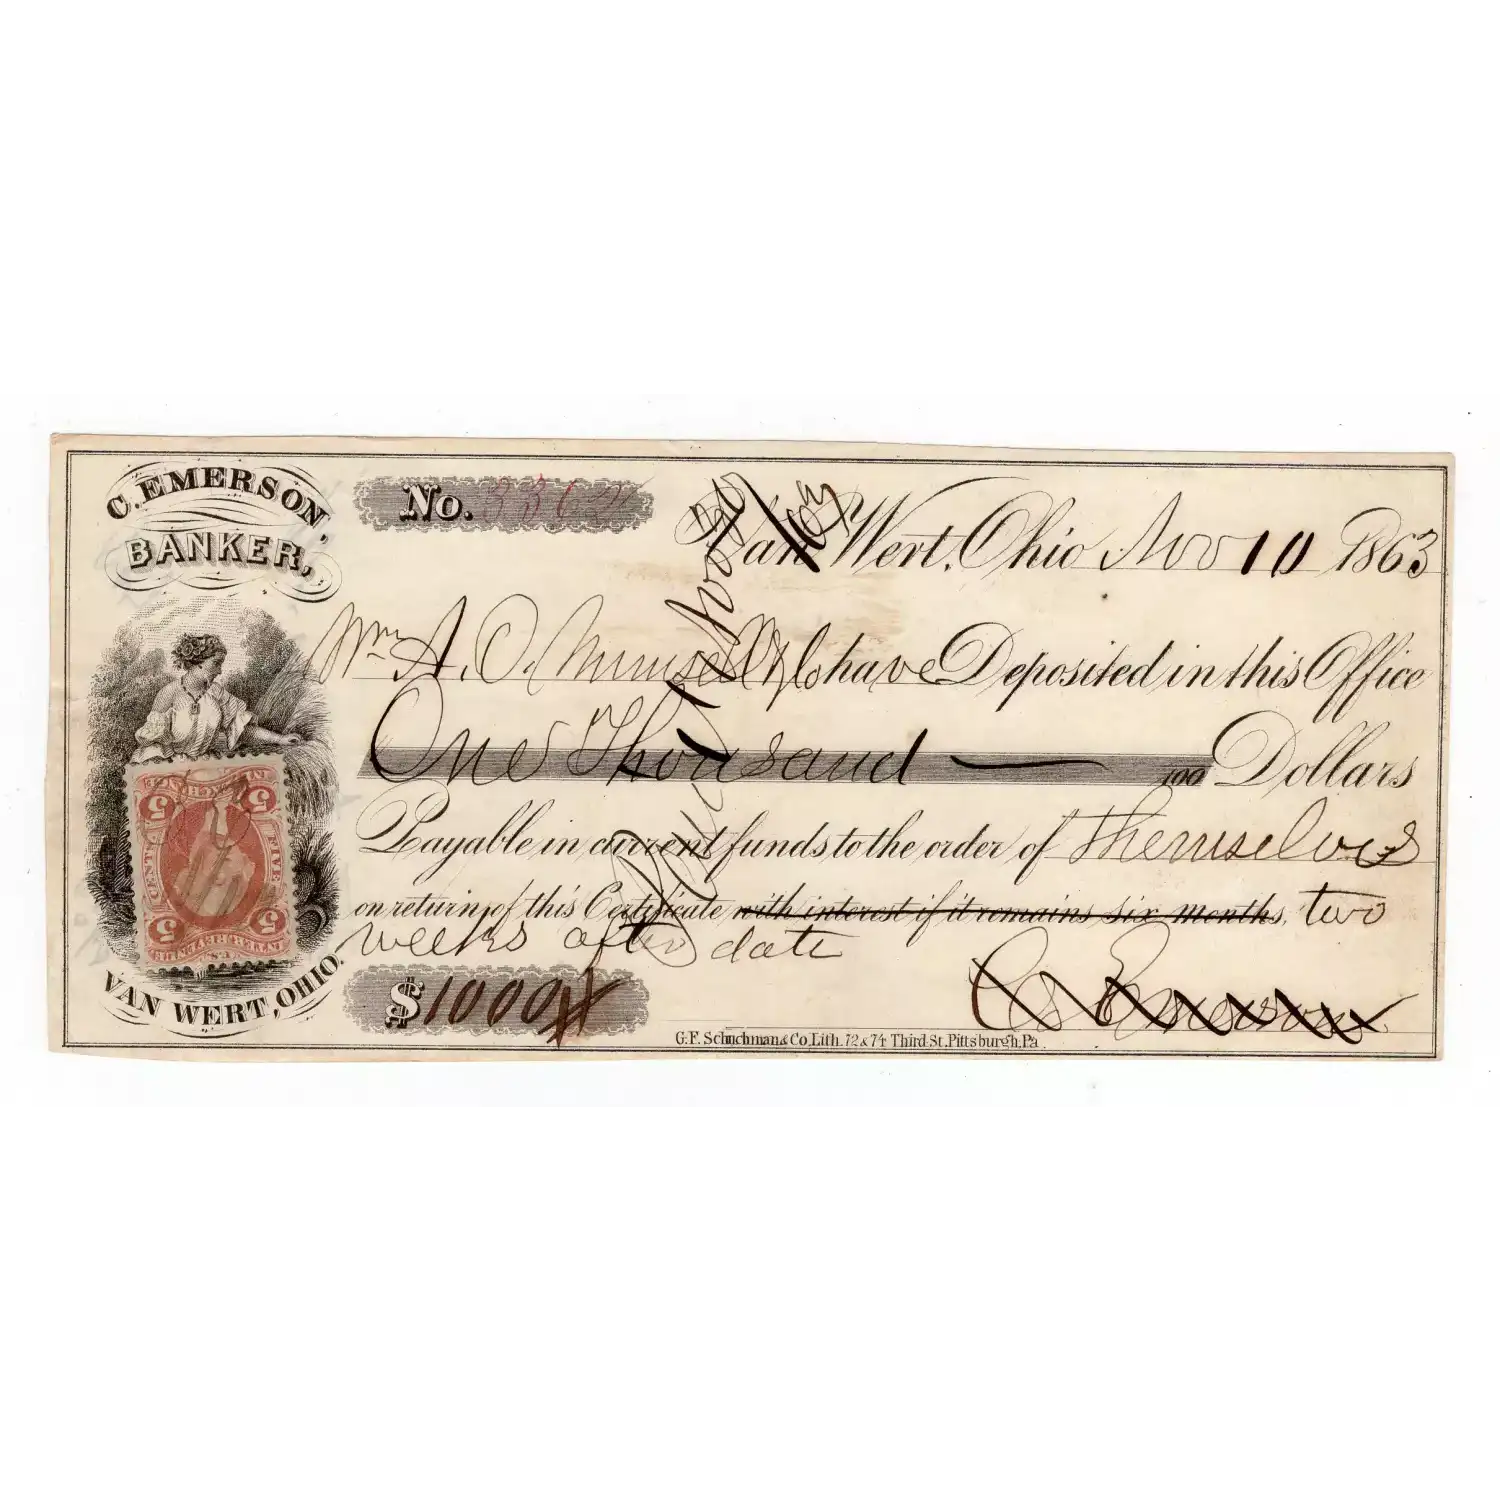 C. EMERSON,
BANKER,
No. 3362
Van Wert, Ohio Nov 10 1863
Wm A. O. Munsell & Co have Deposited in this Office
One Thousand — /100 Dollars
Payable in current funds to the order of Themselves
on return of this Certificate with interest if it remains six months, two
weeks after date
$1000
C. Emerson
Paid Nov
INTER. EXCHANGE
5 5
CENTS FIVE
5 5
U.S. INTER. REV.
VAN WERT, OHIO.
G.F. Schuchman & Co, Lith. 72 & 74 Third St. Pittsburgh, Pa.